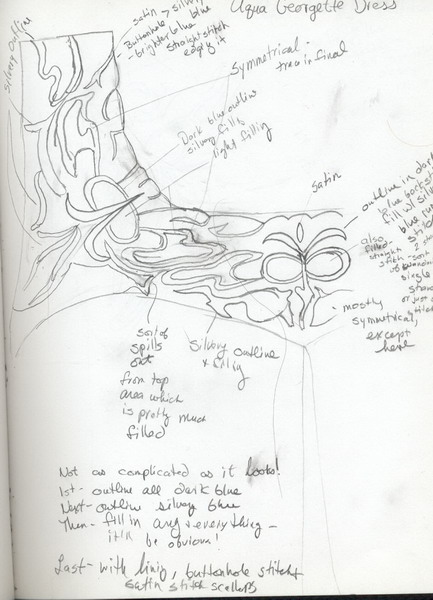 Aqua Georgette Dress
Silvery outline
satin → silvery
blue
Buttonhole
- brighter blue
straight stitch
edge it
Symmetrical -
trace in final
Dark blue outline
silvery fills
light filling
satin
outline in dark
blue backst
fill w/ silv
blue
also
filled
straight
stitch - sort
of
single
or just
mostly
symmetrical,
except
here
sort of
spills
out
from top
area which
is pretty much
filled
Silvery outline
+ filling
Not as complicated as it looks!
1st - outline all dark blue
Next - outline silvery blue
Then - fill in any & everything -
it'll be obvious!
Last - with lining, buttonhole stitch +
satin stitch scallops